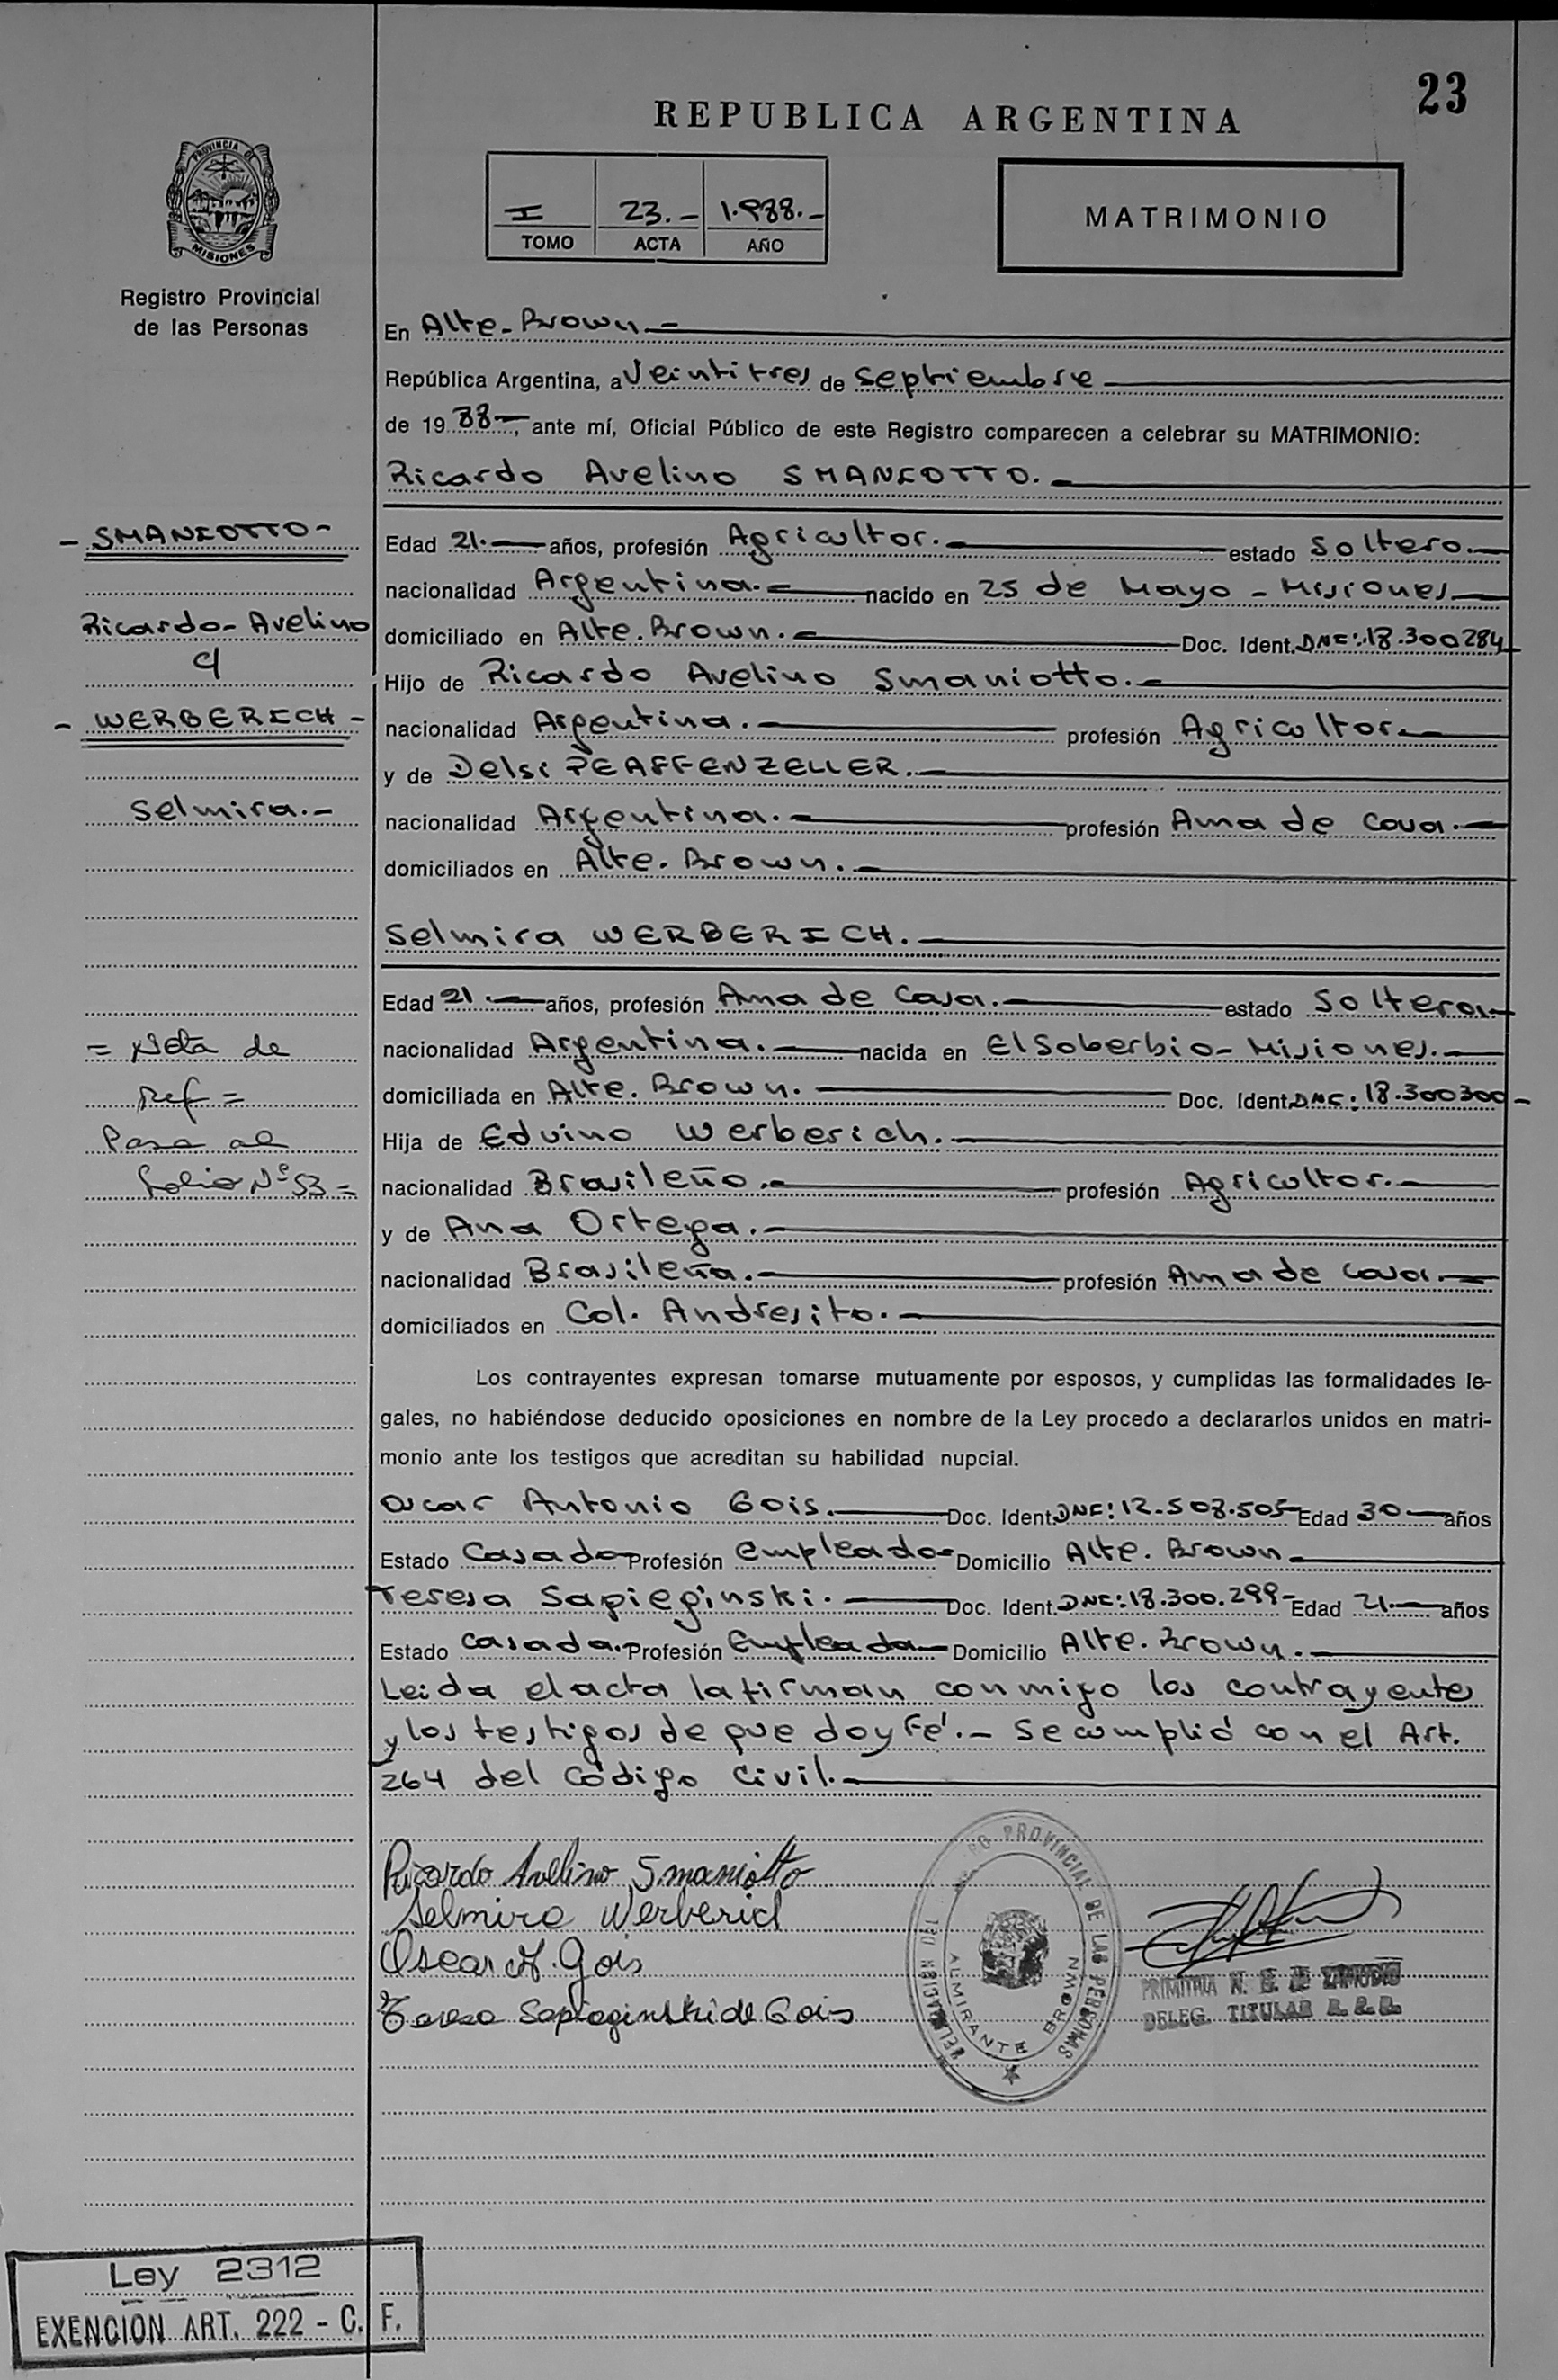 23
REPUBLICA ARGENTINA
PROVINCIA DE
MISIONES
Registro Provincial
de las Personas
I 23.- 1.988.-
TOMO ACTA AÑO
MATRIMONIO
En Alte. Brown.-
República Argentina, a Veintitres de Septiembre
de 1988-, ante mí, Oficial Público de este Registro comparecen a celebrar su MATRIMONIO:
Ricardo Avelino SMANIOTTO.-
- SMANIOTTO -
Ricardo- Avelino
c/
- WERBERICH -
Selmira.-
= Nota de
Ref =
Pasa al
folio Nº 53 =
Edad 21.- años, profesión Agricultor.- estado Soltero.-
nacionalidad Argentina.- nacido en 25 de Mayo - Misiones-
domiciliado en Alte. Brown.- Doc. Ident. DNI: 18.300284-
Hijo de Ricardo Avelino Smaniotto.-
nacionalidad Argentina.- profesión Agricultor-
y de Delsi PFAFFENZELLER.-
nacionalidad Argentina.- profesión Ama de Casa.-
domiciliados en Alte. Brown.-
Selmira WERBERICH.-
Edad 21.- años, profesión Ama de Casa.- estado Soltera-
nacionalidad Argentina.- nacida en El Soberbio- Misiones.-
domiciliada en Alte. Brown.- Doc. Ident. DNI: 18.300300-
Hija de Edvino Werberich.-
nacionalidad Brasileño.- profesión Agricultor.-
y de Ana Ortega.-
nacionalidad Brasileña.- profesión Ama de Casa.-
domiciliados en Col. Andresito.-
Los contrayentes expresan tomarse mutuamente por esposos, y cumplidas las formalidades le-
gales, no habiéndose deducido oposiciones en nombre de la Ley procedo a declararlos unidos en matri-
monio ante los testigos que acreditan su habilidad nupcial.
Oscar Antonio Gois.- Doc. Ident. DNI: 12.508.505- Edad 30- años
Estado Casado- Profesión Empleado- Domicilio Alte. Brown-
Teresa Sapieginski.- Doc. Ident. DNI: 18.300.299- Edad 21.- años
Estado Casada. Profesión Empleada- Domicilio Alte. Brown.-
Leida el acta la firman conmigo los contrayentes
y los testigos de que doy Fé.- Se cumplió con el Art.
264 del Código Civil.-
Ricardo Avelino Smaniotto
Selmira Werberich
Oscar A. Gois
Teresa Sapieginski de Gois
PROVINCIAL DE LAS PERSONAS
DELEGACION DEL
ALMIRANTE BROWN
PRIMITIVA N. E. de
DELEG. TITULAR
Ley 2312
EXENCION ART. 222 - C. F.